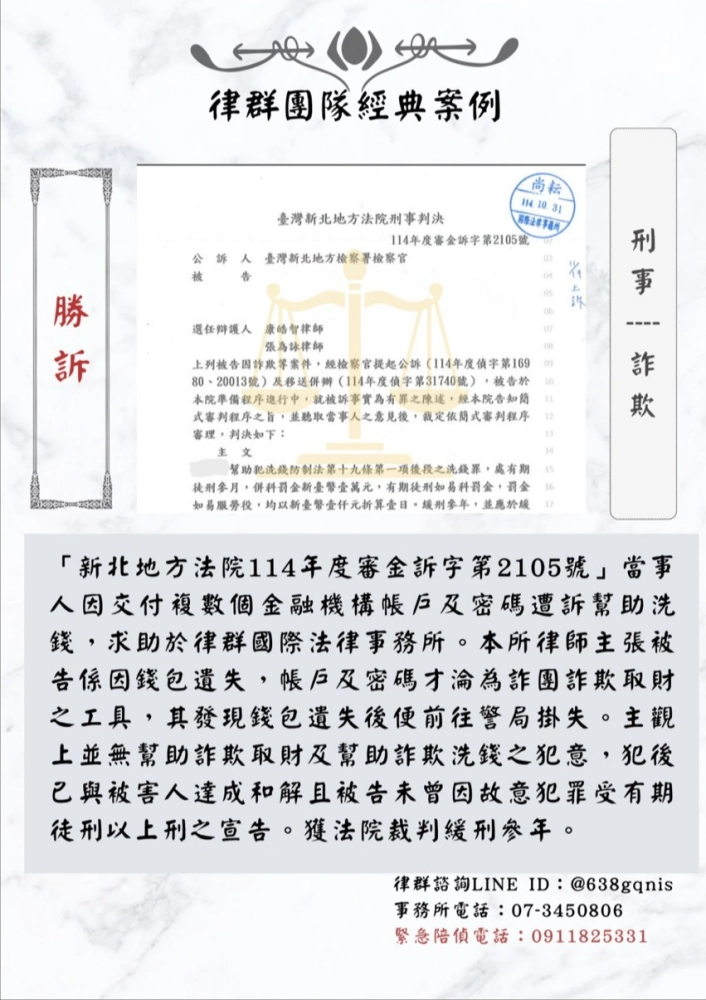 律群團隊經典案例
勝訴
刑事----詐欺
尚耘
114.10.31
國際法律事務所
臺灣新北地方法院刑事判決
114年度審金訴字第2105號
公訴人 臺灣新北地方檢察署檢察官
被告
選任辯護人 康皓智律師
張為詠律師
上列被告因詐欺等案件,經檢察官提起公訴(114年度偵字第169
80、20013號)及移送併辦(114年度偵字第31740號),被告於
本院準備程序進行中,就被訴事實為有罪之陳述,經本院告知簡
式審判程序之旨,並聽取當事人之意見後,裁定依簡式審判程序
審理,判決如下:
主文
幫助犯洗錢防制法第十九條第一項後段之洗錢罪,處有期
徒刑參月,併科罰金新臺幣壹萬元,有期徒刑如易科罰金,罰金
如易服勞役,均以新臺幣壹仟元折算壹日。緩刑參年,並應於緩
「新北地方法院114年度審金訴字第2105號」當事
人因交付複數個金融機構帳戶及密碼遭訴幫助洗
錢,求助於律群國際法律事務所。本所律師主張被
告係因錢包遺失,帳戶及密碼才淪為詐團詐欺取財
之工具,其發現錢包遺失後便前往警局掛失。主觀
上並無幫助詐欺取財及幫助詐欺洗錢之犯意,犯後
已與被害人達成和解且被告未曾因故意犯罪受有期
徒刑以上刑之宣告。獲法院裁判緩刑參年。
律群諮詢LINE ID:@638gqnis
事務所電話:07-3450806
緊急陪偵電話:0911825331